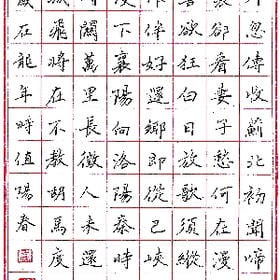 外忽傳收薊北初聞啼
裳卻看妻子愁何在漫
喜欲狂白日放歌須縱
作伴好還鄉即從巴峽
便下襄陽向洛陽秦時
時關萬里長徵人未還
城飛將在不教胡馬度
歲在龍年時值陽春